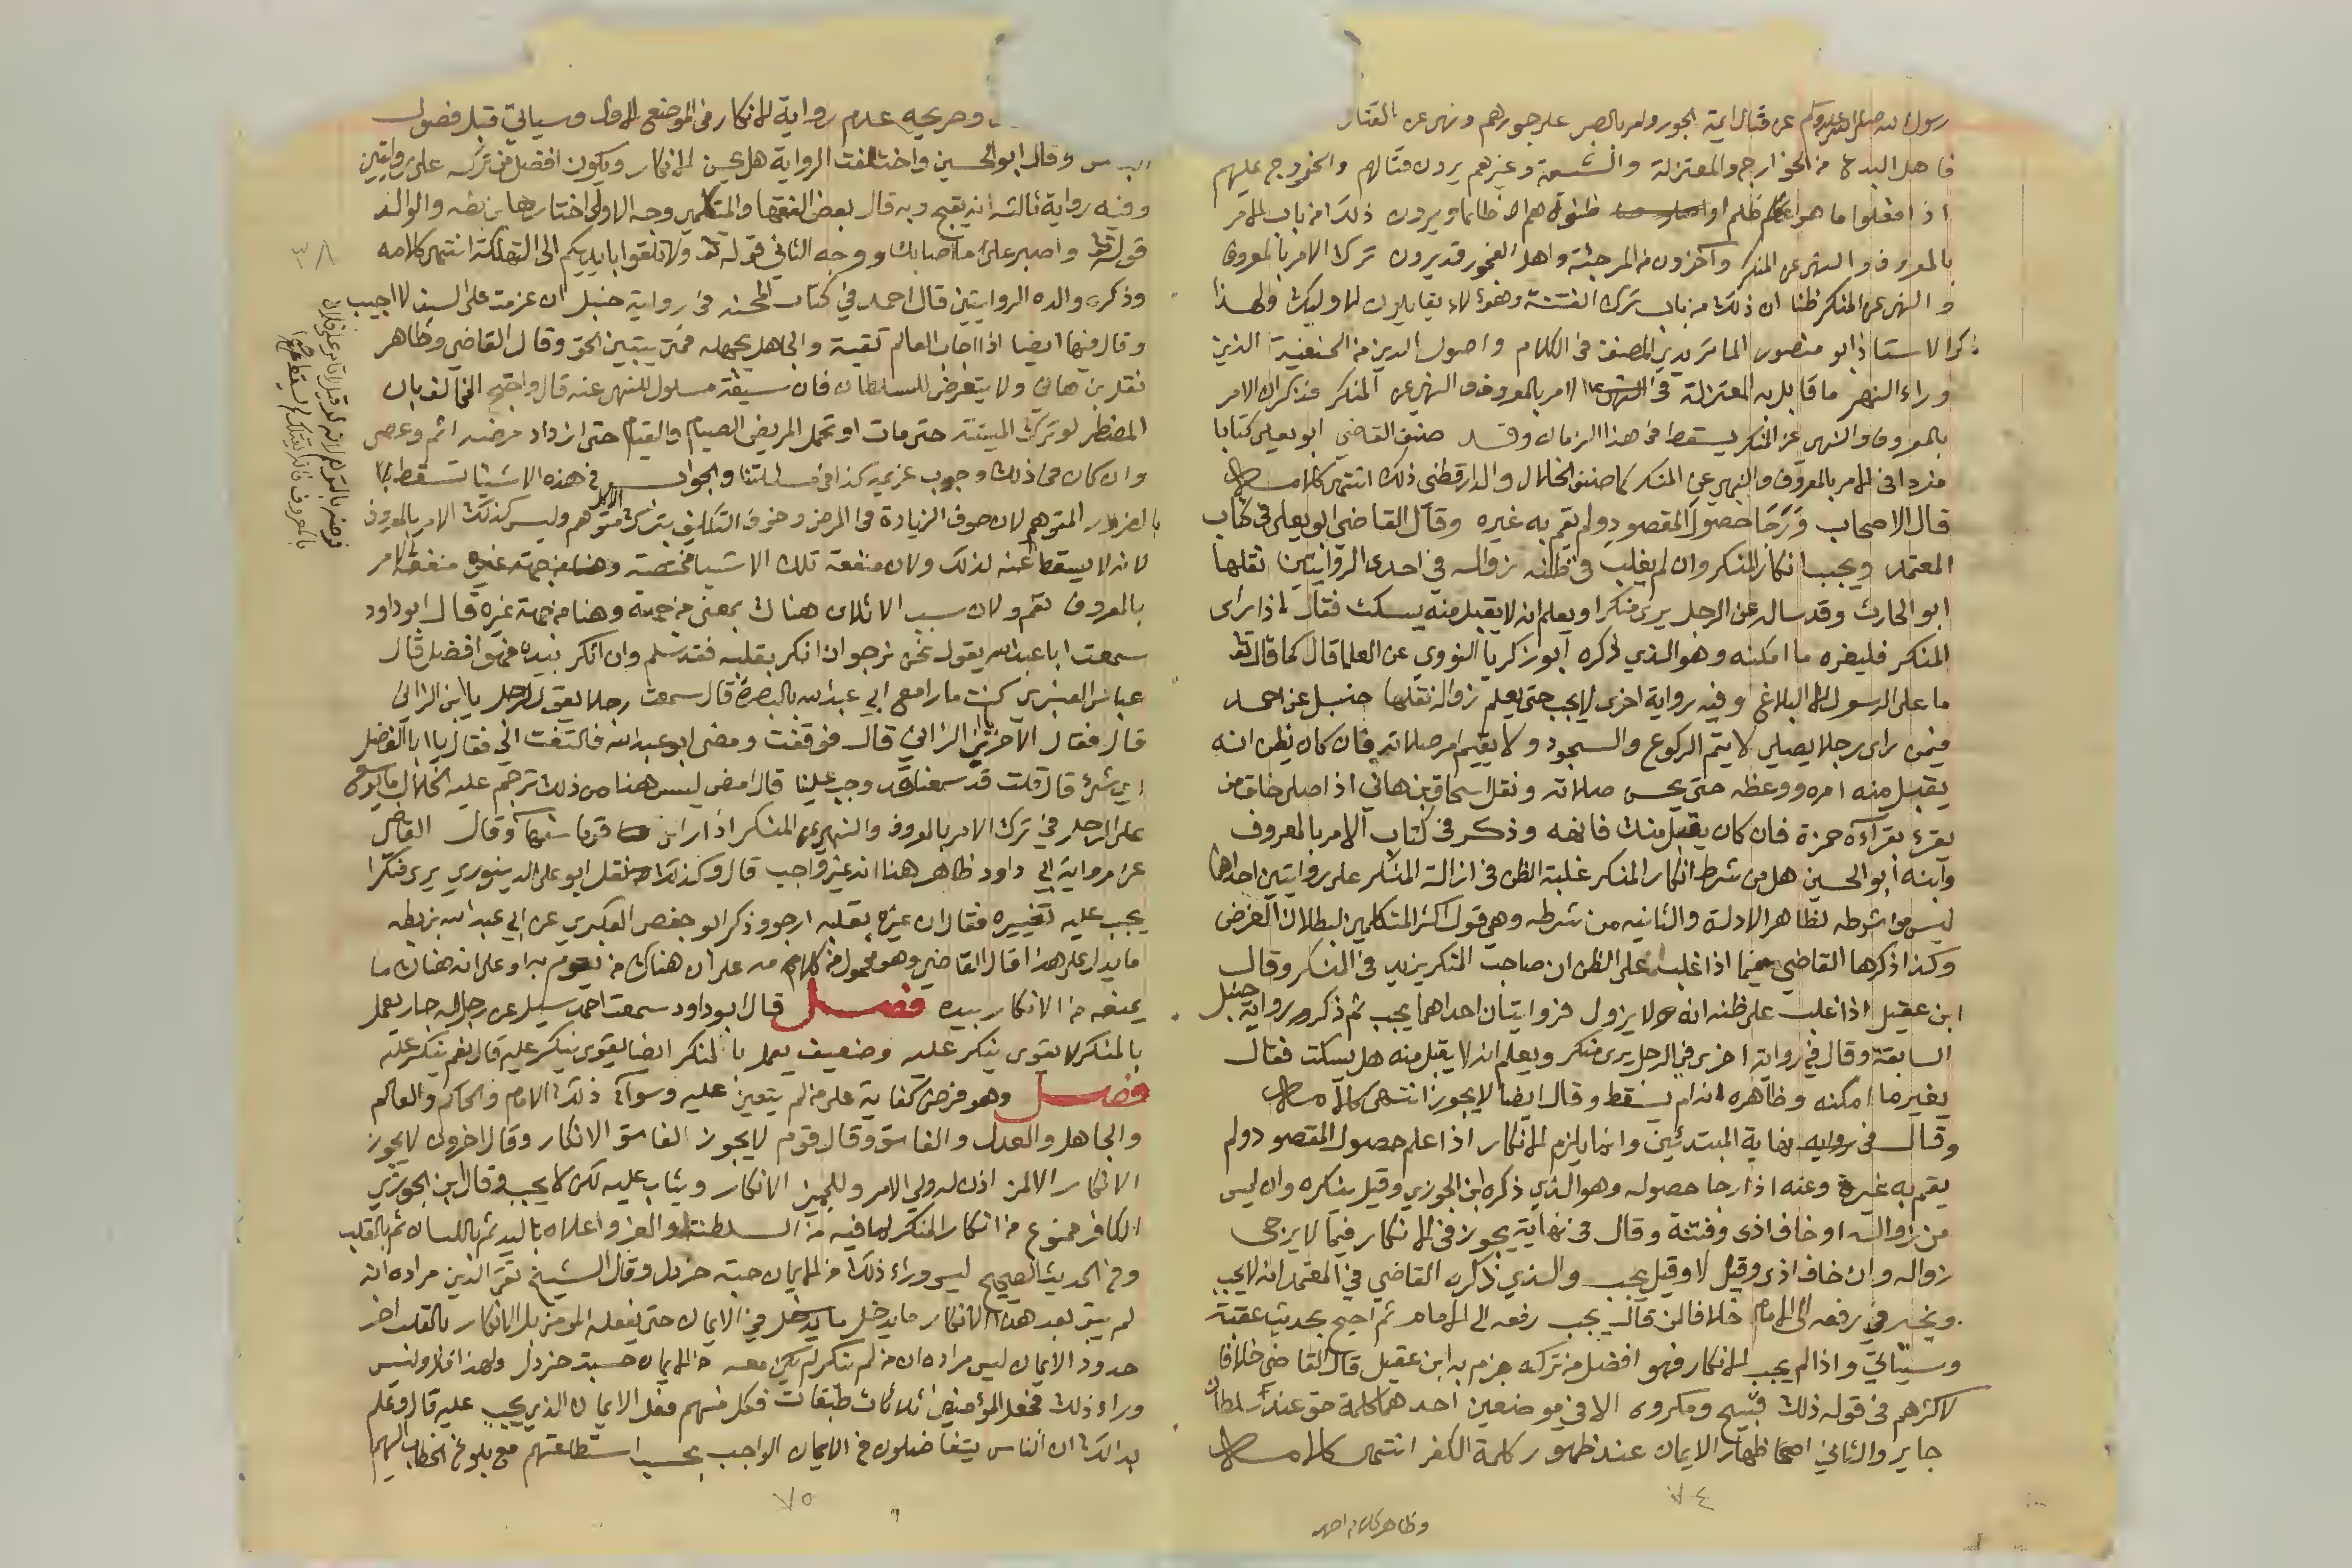 رسول الله صلى الله عليه وسلم عن قتال ايمة الجور وامر بالصبر على جورهم ونهى عن القتال
فاهل البدع من الخوارج والمعتزلة والشيعة وغيرهم يرون قتالهم والخروج عليهم
اذا فعلوا ما هو ظلم او ظنوه هم ظلما ويرون ذلك من باب الامر
بالمعروف والنهي عن المنكر وآخرون من المرجئة واهل الفجور قد يرون ترك الامر بالمعروف
والنهي عن المنكر ظنا ان ذلك من باب ترك الفتنة وهؤلاء يقابلون لاوليك ولهذا
ذكر الاستاذ ابو منصور الماتريدي المصنف في الكلام واصول الدين من الحنفية الذين
وراء النهر ما قابل به المعتزلة في الامر بالمعروف والنهي عن المنكر فذكر ان الامر
بالمعروف والنهي عن المنكر يسقط في هذا الزمان وقد صنف القاضي ابو يعلى كتابا
مفردا في الامر بالمعروف والنهي عن المنكر كما صنف الخلال والدارقطني ذلك انتهى كلامه
قال الاصحاب ورجا حصول المقصود ولم يقم به غيره وقال القاضي ابو يعلى في كتاب
المعتمد ويجب انكار المنكر وان لم يغلب في ظنه زواله في احدى الروايتين نقلها
ابو الحارث وقد ساله عن الرجل يرى منكرا ويعلم انه لا يقبل منه يسكت فقال اذا راى
المنكر فليغيره ما امكنه وهو الذي ذكره ابو زكريا النووي عن العلما قال كما قال تعا
ما على الرسول الا البلاغ وفيه رواية اخرى لا يجب حتى يعلم زواله نقلها حنبل عن احمد
فيمن راى رجلا يصلي لا يتم الركوع والسجود ولا يقيم امر صلاته فان كان يظن انه
يقبل منه امره ووعظه حتى يحسن صلاته ونقل اسحاق بن هاني اذا صلى خلف من
يقرء بقرآءة حمزة فان كان يقبل منك فانهه وذكر في كتاب الامر بالمعروف
وابنه ابو الحسين هل من شرط انكار المنكر غلبة الظن في ازالة المنكر على روايتين احداها
ليس من شرطه لظاهر الادلة والثانيه من شرطه وهي قول اكثر المتكلمين لبطلان الغرض
وكذا ذكرها القاضي فيما اذا غلب على الظن ان صاحب المنكر يزيد في المنكر وقال
ابن عقيل اذا غلب على ظنه انه لا يزول فروايتان احداهما يجب ثم ذكر رواية حنبل
السابقة وقال في رواية اخرى في الرجل يرى منكر ويعلم انه لا يقبل منه هل يسكت فقال
يغير ما امكنه وظاهره انه لم يسقط وقال ايضا لا يجوز انتهى كلامه
وقال في نهاية المبتدئين وانما يلزم الانكار اذا علم حصول المقصود ولم
يقم به غيره وعنه اذا رجا حصوله وهو الذي ذكره ابن الجوزي وقيل ينكره وان ايس
من زواله او خاف اذى وفتنة وقال في نهاية يجوز في الانكار فيما لا يرجى
زواله وان خاف اذى وقيل لا وقيل يجب والذي ذكره القاضي في المعتمد انه لا يجب
ويخير في رفعه الى الامام خلافا لمن قال يجب رفعه الى الامام ثم احتج بحديث عقبة
وسياتي واذا لم يجب الانكار فهو افضل من تركه جزم به ابن عقيل قال القاضي خلافا
لاكثرهم في قوله ذلك قبيح ومكروه الا في موضعين احدهما كلمة حق عند سلطان
جاير والثاني اظهار الايمان عند ظهور كلمة الكفر انتهى كلامه
وظاهر كلام احمد
٧٤
عدم رواية الانكار في الموضع الاول وسياتي قبل فصول
وقال ابو الحسين واختلفت الرواية هل يحسن الانكار ويكون افضل من تركه على روايتين
وفيه رواية ثالثه انه يقبح وبه قال بعض الفقها والمتكلمين وجه الاولى اختارها ابن بطه والوالد
قوله تعا واصبر على ما اصابك ووجه الثاني قوله تعا ولا تلقوا بايديكم الى التهلكة انتهى كلامه
وذكر والده الروايتين قال احمد في كتاب المحنه في رواية حنبل ان عرضت على السيف لا اجيب
وقال فيها ايضا اذا اجاب العالم تقية والجاهل يجهل فمتى يتبين الحق وقال القاضي وظاهر
نقل بن هاني ولا يتعرض للسلطان فان سيفه مسلول للنهي عنه قال واحتج المخالف بان
المضطر لو ترك الميتة حتى مات او تحمل المريض الصيام والقيام حتى ازداد مرضه اثم وعصى
وان كان في ذلك وجوب عزيمه كذا في مسئلتنا والجواب في هذه الاشيا تسقط
بالضرر المتوهم لان خوف الزيادة في المرض وخوف التلف بترك الاكل متوهم وليس كذلك الامر بالمعروف
لانه لا يسقط عنه لذلك ولان منفعة تلك الاشيا مختصة وهنا منفعة الامر
بالمعروف تعم ولان سبب الاتلاف هناك بمعنى من جهته وهنا من جهة غيره قال ابو داود
سمعت ابا عبد الله يقول نحن نرجو ان انكر بقلبه فقد سلم وان انكر بيده فهو افضل قال
عباس العنبري كنت مارا مع ابي عبد الله بالبصرة قال سمعت رجلا يقول لرجل يا ابن الزاني
قال فقال الآخر يا ابن الزاني قال فوقفت ومضى ابو عبد الله فالتفت الي فقال يا ابا الفضل
اي شئ قال قلت قد سمعنا قد وجب علينا قال امض ليس هذا من ذلك ترجم عليه الخلال ما يوسع
على الرجل في ترك الامر بالمعروف والنهي عن المنكر اذا راى قوما سفهآ وقال القاضي
عن رواية ابي داود ظاهر هذا انه غير واجب قال وكذلك نقل ابو علي الدينوري يرى منكرا
يجب عليه تغييره فقال ان غيره بقلبه ارجو وذكر ابو حفص العكبري عن ابي عبد الله بن بطه
ما يدل على هذا قال القاضي وهو محمول من كلامه على ان هناك من يقوم به او على انه هناك ما
يمنعه من الانكار بيده فصل قال ابو داود سمعت احمد سيل عن رجل له جار يعمل
بالمنكر لا يقوى ينكر عليه وضعيف يعمل بالمنكر ايضا يقوى ينكر عليه قال نعم ينكر عليه
فصل وهو فرض كفاية على من لم يتعين عليه وسوآء ذلك الامام والحاكم والعالم
والجاهل والعدل والفاسق وقال قوم لا يجوز الفاسق الانكار وقال اخرون لا يجوز
الانكار الا لمن اذن له ولي الامر وللمميز الانكار ويثاب عليه لكن لا يجب وقال ابن الجوزي
الكافر ممنوع من انكار المنكر لما فيه من السلطنة والعز واعلاه باليد ثم باللسان ثم بالقلب
وفي الحديث الصحيح ليس وراء ذلك من الايمان حبة خردل وقال الشيخ تقي الدين مراده انه
لم يبق بعد هذا الانكار ما يدخل في الايمان حتى يفعله المؤمن بل الانكار بالقلب اخر
حدود الايمان ليس مراده ان من لم ينكر لم يكن معه من الايمان حبة خردل ولهذا قال وليس
وراء ذلك فجعل المؤمنين ثلاث طبقات فكل منهم فعل الايمان الذي يجب عليه قال وعلم
بذلك ان الناس يتفاضلون في الايمان الواجب بحسب استطاعتهم مع بلوغ الخطاب اليهم
٧٥
٣٨